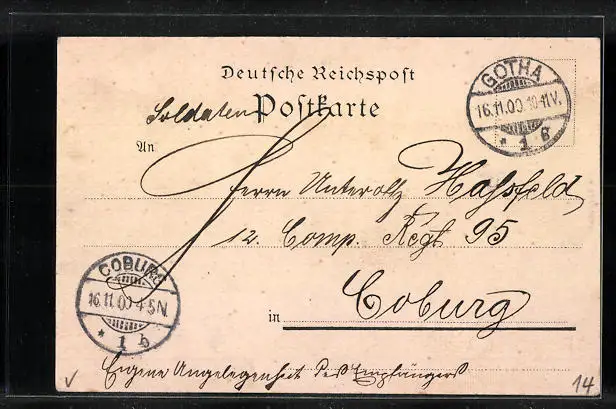 Deutsche Reichspost
Soldaten Postkarte
GOTHA
16.11.00.10-11V.
* 1 g
An
Herrn Unteroffz Hassfeld
12. Comp. Regt 95
COBURG
16.11.00 4-5N.
* 1 b
in Coburg
Eigene Angelegenheit des Empfängers
14